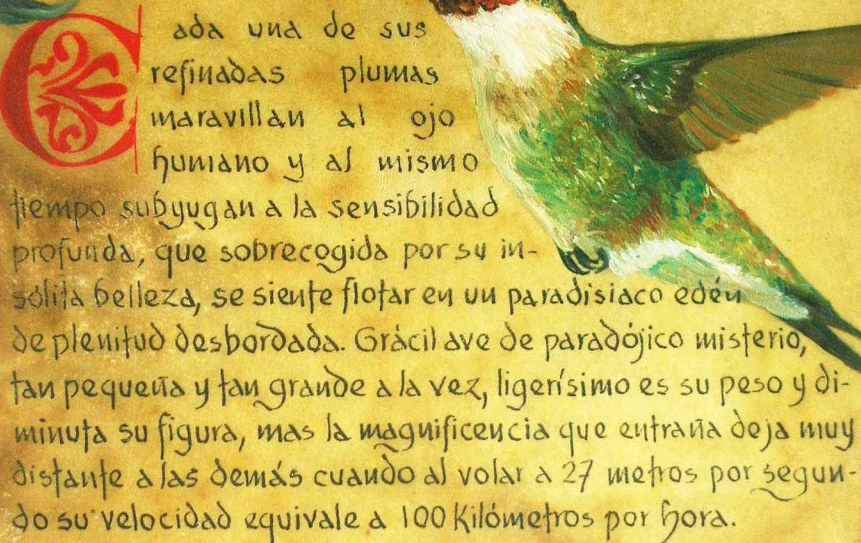 Cada una de sus
refinadas plumas
maravillan al ojo
humano y al mismo
tiempo subyugan a la sensibilidad
profunda, que sobrecogida por su in-
sólita belleza, se siente flotar en un paradisiaco edén
de plenitud desbordada. Grácil ave de paradójico misterio,
tan pequeña y tan grande a la vez, ligerísimo es su peso y di-
minuta su figura, mas la magnificencia que entraña deja muy
distante a las demás cuando al volar a 27 metros por segun-
do su velocidad equivale a 100 Kilómetros por hora.